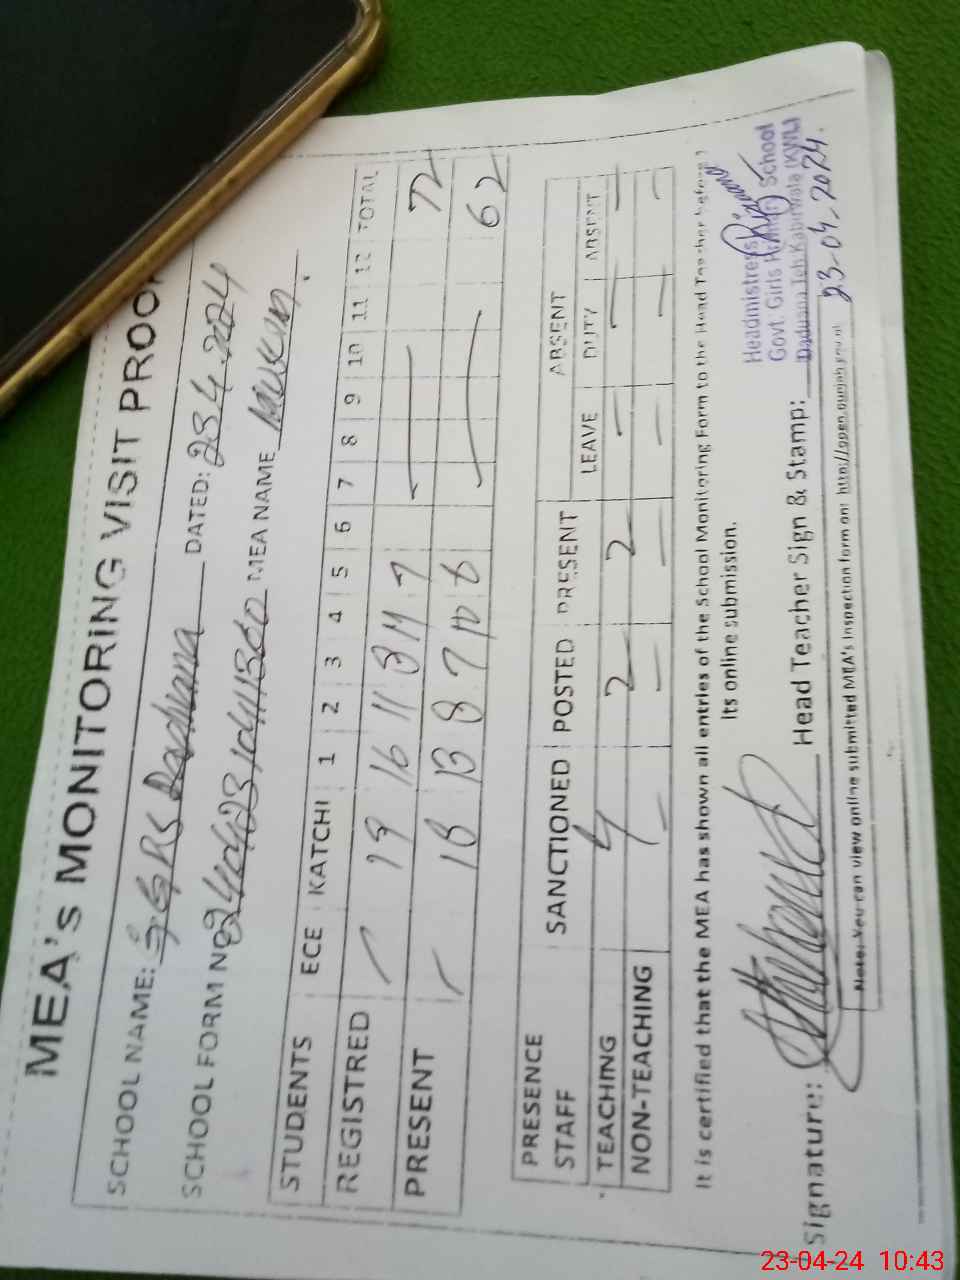 MEA's MONITORING VISIT PROOF
SCHOOL NAME: GGPS Daduana DATED: 23.4.2024
SCHOOL FORM No MEA NAME
STUDENTS ECE KATCHI 1 2 3 4 5 6 7 8 9 10 11 12 TOTAL
REGISTRED 19 16 11 8 11 7 72
PRESENT 18 13 8 7 10 6 62
PRESENCE ABSENT
STAFF SANCTIONED POSTED PRESENT LEAVE DUTY ABSENT
TEACHING 4 2 2 — — —
NON-TEACHING — — — — — —
It is certified that the MEA has shown all entries of the School Monitoring Form to the Head Teacher before
Its online submission.
Headmistress
Govt. Girls Primary School
Daduana Teh Kabirwala (KWL)
Signature: Head Teacher Sign & Stamp: 23-04-2024.
Note: You can view online submitted MEA's Inspection form on: http://open.punjab.gov.pk
23-04-24 10:43